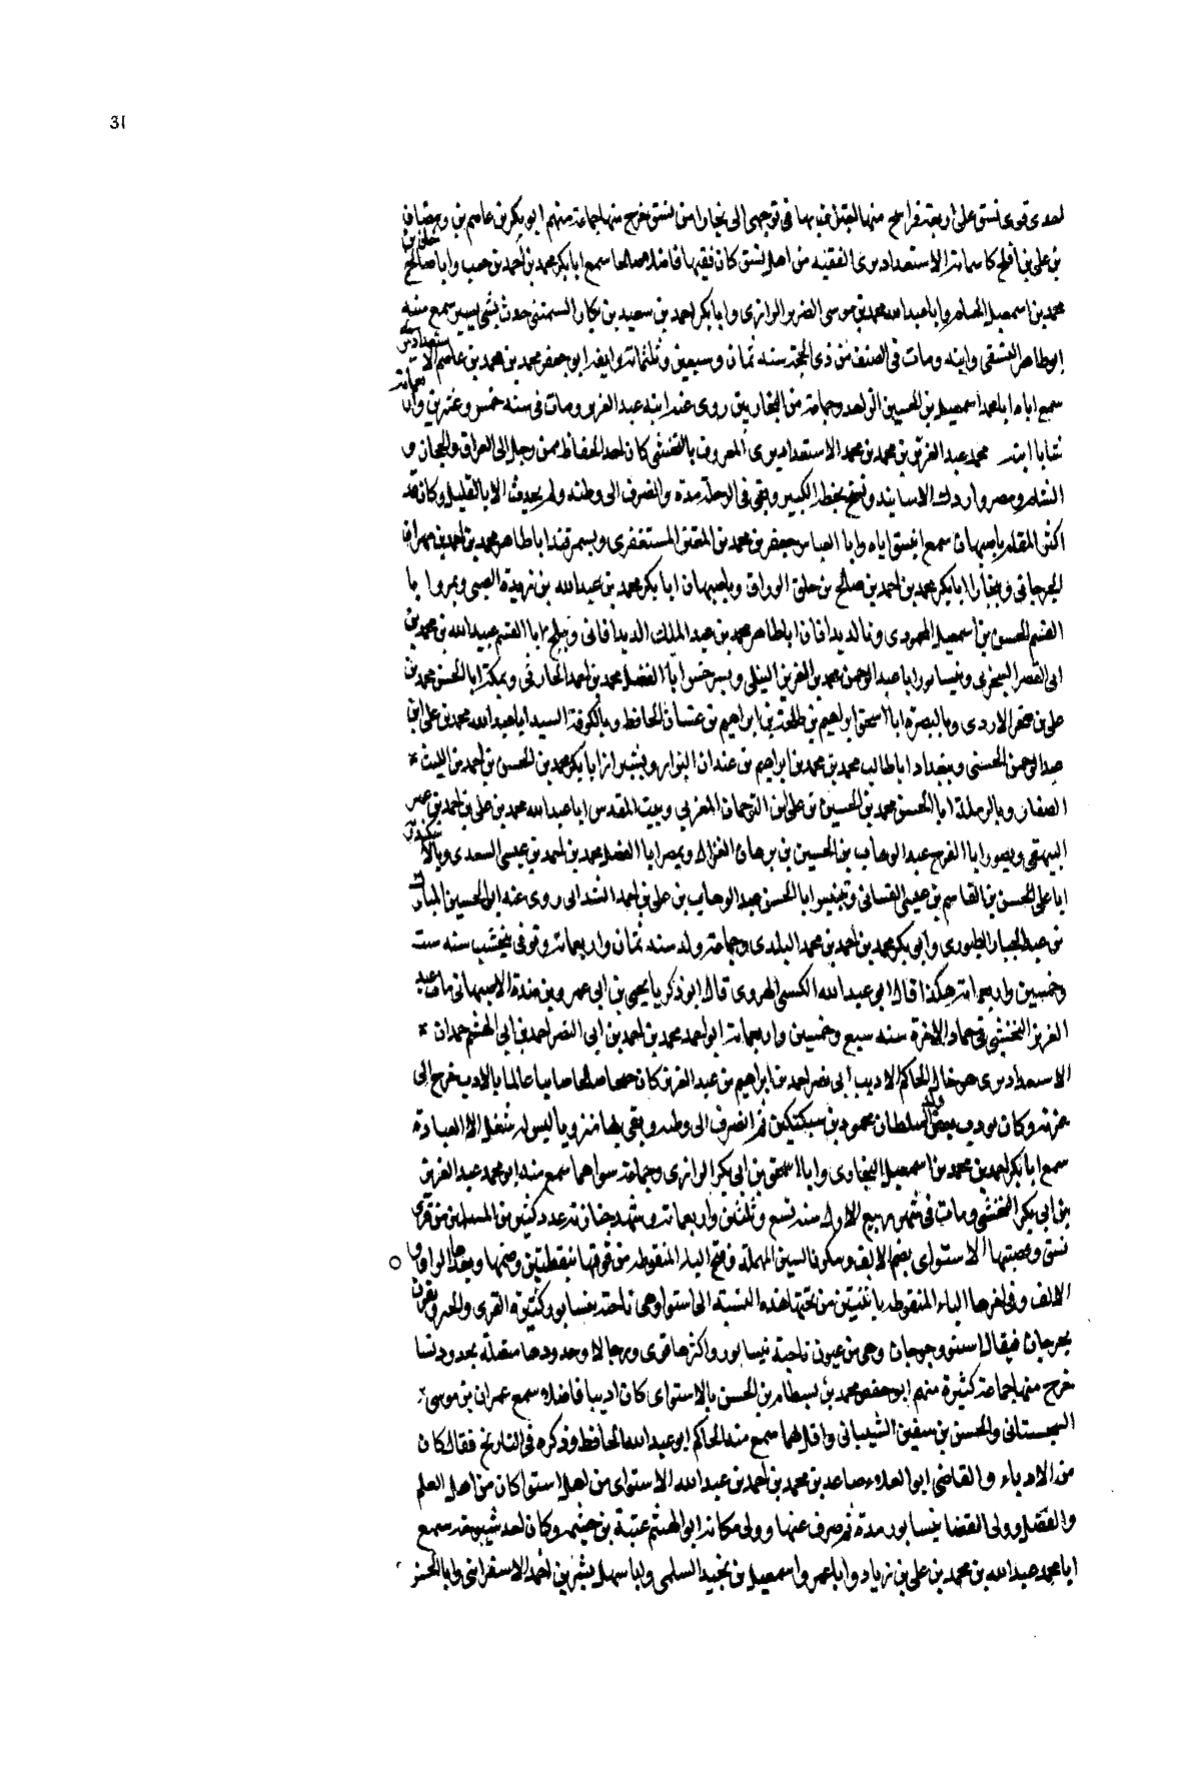 31
احدى قرى نسف على اربعة فراسخ منها بت بها في توجهى الى بخارا من نسف خرج منها جماعة منهم ابو بكر بن عاصم بن رمضان
بن على بن افلح الاستغداديزى الفقيه من اهل نسف كان فقيها فاضلا صالحا سمع ابا بكر محمد بن احمد بن حبيب وابا صالح خلف بن
محمد بن اسمعيل الخيام وابا عبد الله محمد بن موسى الضرير الرازى وابا بكر احمد بن سعيد بن بكار السمتنى حدث بشى يسير سمع منه
ابو طاهر النسفى وابنه ومات في النصف من ذى الحجة سنه ثمان وسبعين وثلثمائة وابنه ابو جعفر محمد بن محمد بن عاصم الاستغداديزى
سمع اباه ابا اسمعيل بن الحسين الزاهد وجماعة من البخاريين روى عنه ابنه عبد العزيز ومات في سنه خمس وعشرين واربعمائة
ابنه محمد عبد العزيز بن محمد بن محمد الاستغداديزى المعروف بالنخشبى كان احد الحفاظ ممن رحل الى العراق والحجاز و
الشام ومصر وادرك الاسانيد ونسخ بخطه الكبير وبقى في الرحلة مدة وانصرف الى وطنه ولم يحدث الا بالقليل وكان قد
اكثر المقام باصبهان سمع بنسف اباه وابا العباس جعفر بن محمد بن المعتز المستغفرى وبسمرقند ابا طاهر محمد بن احمد بن مهران
الجرجانى وببخارا ابا بكر محمد بن احمد بن صالح بن خلف الوراق وباصبهان ابا بكر محمد بن عبد الله بن ريذة الضبى وبمرو ابا
الغنيم الحسن بن اسمعيل المحمودى وبالديداقان ابا طاهر محمد بن عبد الملك الديداقانى وببلخ ابا القسم عبيد الله بن محمد بن
ابى القصر السجزى وبنيسابور ابا عبد الرحمن محمد بن العزيز النيلى وبسرخس ابا الفضل محمد بن احمد الحارثى وبمكة ابا الحسن محمد بن
على بن صخر الازدى وبالبصرة ابا اسحق ابراهيم بن طلحة بن ابراهيم بن غسان الحافظ وبالكوفة السيد ابا عبد الله محمد بن على ابن
عبد الرحمن الحسنى وببغداد ابا طالب محمد بن محمد بن ابراهيم بن غيلان البزار وبشيراز ابا بكر محمد بن الحسن بن احمد بن الليث
الصفار وبالرملة ابا الحسين محمد بن الحسين بن على بن الترجمان الغزى وببيت المقدس ابا عبد الله محمد بن على بن احمد بن
البيهقى وبصور ابا الفرج عبد الوهاب بن الحسين بن برهان الغزال وبمصر ابا الفضل محمد بن احمد بن عيسى السعدى وبالاسكندرية
ابا على الحسن بن القاسم بن عيسى الغسانى وبتنيس ابا الحسن عبد الوهاب بن على بن احمد روى عنه ابو الحسين المبارك
بن عبد الجبار الطيورى وابو بكر محمد بن احمد بن محمد البلدى وجماعة ولد سنه ثمان واربعمائة وتوفى بنخشب سنه ست
وخمسين واربعمائة هكذا قال ابو عبد الله الكتبى الهروى قال ابو زكريا يحيى بن ابى عمرو بن مندة الاصبهانى مات عبد
العزيز النخشبى في جمادى الاخرة سنه سبع وخمسين واربعمائة ابو احمد محمد بن احمد بن ابى النصر احمد بن ابى الهيثم حمدان
الاستغداديزى هو خال الحاكم الاديب ابى نصر احمد بن ابراهيم بن عبد العزيز كان صالحا عالما بالادب خرج الى
غزنة وكان يودب بعض ولد السلطان محمود بن سبكتكين ثم انصرف الى وطنه وبقى بها منزويا ليس له شغل الا العبادة
سمع ابا بكر احمد بن محمد بن اسمعيل البخارى وابا اسحق بن ابى بكر الرازى وجماعة سواهما سمع منه ابو محمد عبد العزيز
بن ابى بكر النخشبى ومات في شهر ربيع الاول سنه تسع وثلثين واربعمائة وشهد جنازته عدد كثير من المسلمين من قرى
نسف وقصبتها الاستوائى بضم الالف وسكون السين المهملة وفتح التاء المنقوطة من فوقها بنقطتين وضمها وبعدها الواو و
الالف وفي اخرها الياء المنقوطة باثنتين من تحتها هذه النسبة الى استوا وهى ناحية بنيسابور كثيرة القرى والخير وتقرن
بجرجان فيقال استو وجرجان وهى من عيون ناحية نيسابور واكثرها قرى ورجالا وحدودها متصلة بحدود نسا
خرج منها جماعة كثيرة منهم ابو جعفر محمد بن بسطام بن الحسن بالاستوائى كان اديبا فاضلا سمع عمران بن موسى
السجستانى والحسن بن سفين الشيبانى واقرانهما سمع منه الحاكم ابو عبد الله الحافظ وذكره في التاريخ فقال كان
من الادباء والقاضى ابو العلاء صاعد بن محمد بن احمد بن عبد الله الاستوائى من اهل استوا كان من اهل العلم
والفضل وولى القضا بنيسابور مدة ثم صرف عنها وولى مكانه ابو الهيثم عتبة بن خيثمة وكان احد شيوخه سمع
ابا محمد عبد الله بن محمد بن على بن زياد وابا عمرو اسمعيل بن نجيد السلمى وابا سهل بشر بن احمد الاسفراينى وابا الحسن